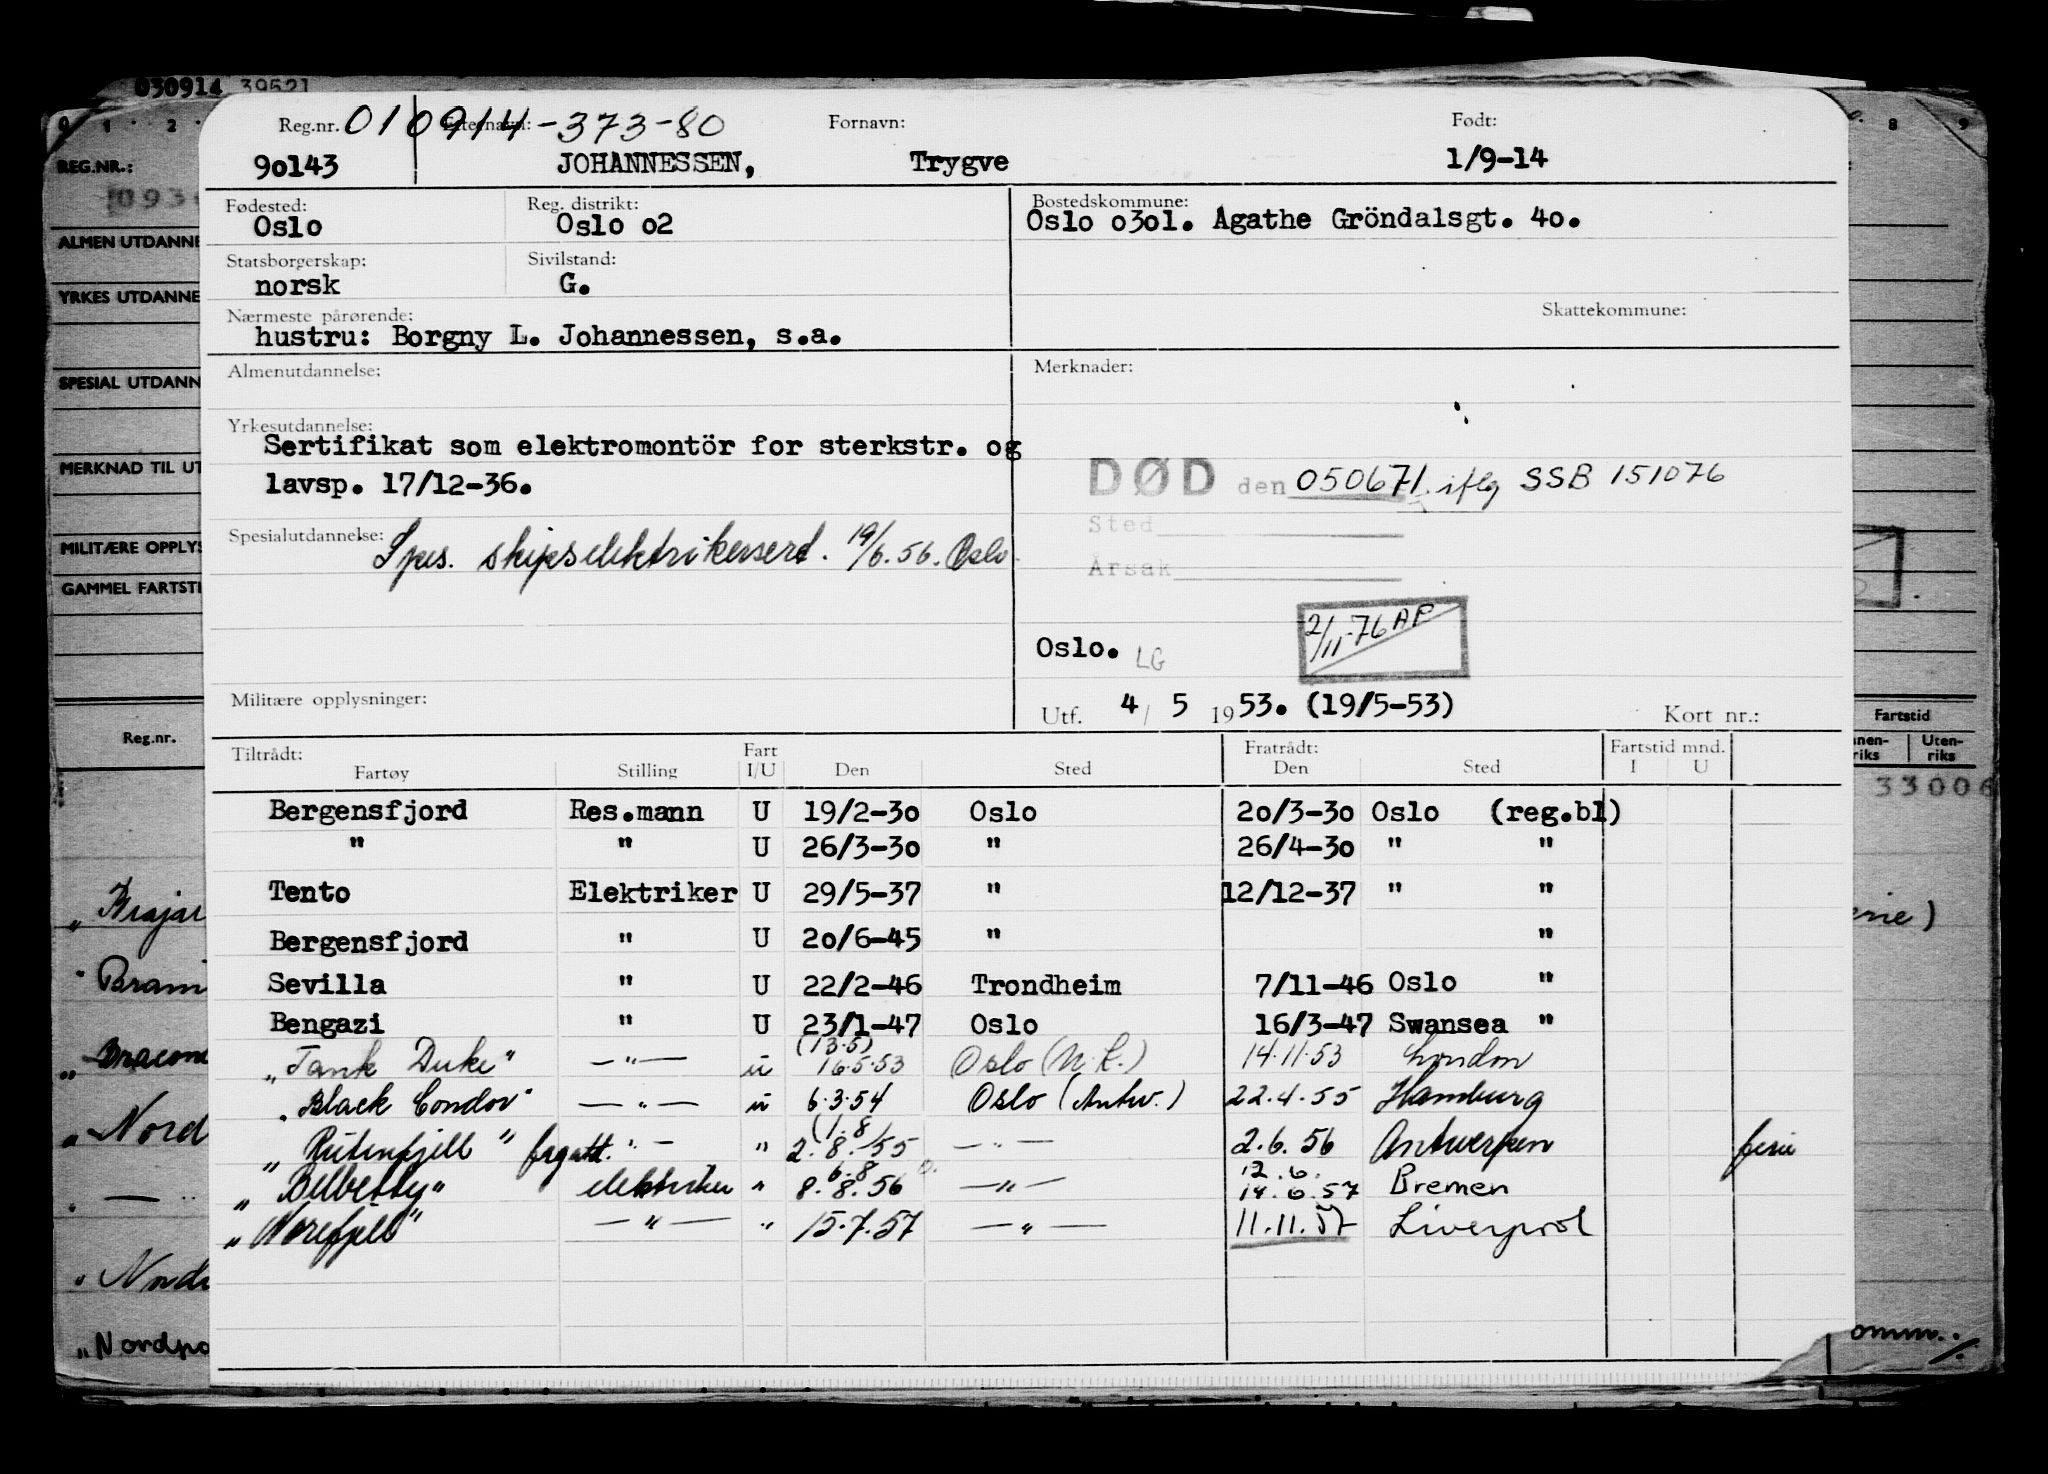 030914 39521
Reg.nr. 010914-373-80 Etternavn: Fornavn: Født:
90143 JOHANNESSEN, Trygve 1/9-14
Fødested: Reg. distrikt: Bostedskommune:
Oslo Oslo o2 Oslo o3o1. Agathe Gröndalsgt. 4o.
Statsborgerskap: Sivilstand:
norsk G.
Nærmeste pårørende: Skattekommune:
hustru: Borgny L. Johannessen, s.a.
Almenutdannelse: Merknader:
Yrkesutdannelse:
Sertifikat som elektromontör for sterkstr. og
lavsp. 17/12-36.
DØD den 050671 iflg SSB 151076
Sted
Årsak
Spesialutdannelse:
Spes. skipselektrikersert. 19/6.56. Oslo
2/11-76 AP
Oslo. LG
Militære opplysninger:
Utf. 4/ 5 1953. (19/5-53) Kort nr.:
Tiltrådt: Fart Fratrådt: Fartstid mnd.
Fartøy Stilling I/U Den Sted Den Sted I U
Bergensfjord Res.mann U 19/2-3o Oslo 2o/3-3o Oslo (reg.bl)
" " U 26/3-3o " 26/4-3o " "
Tento Elektriker U 29/5-37 " 12/12-37 " "
Bergensfjord " U 2o/6-45 " "
Sevilla " U 22/2-46 Trondheim 7/11-46 Oslo "
Bengazi " U 23/1-47 Oslo 16/3-47 Swansea "
(13.5)
"Tank Duke" —"— u 16.5.53 Oslo (N.L.) 14.11.53 London
"Black Condor" —"— u 6.3.54 Oslo (Antw.) 22.4.55 Hamburg
(1.8)
"Rutenfjell" "— " 2.8.55 —"— 2.6.56 Antwerpen ferie
6.8 12.6.
"Belbetty" elektriker " 8.8.56 —"— 14.6.57 Bremen
"Norefjell" —"— " 15.7.57 —"— 11.11.57 Liverpool
REG.NR.:
ALMEN UTDANNE
YRKES UTDANNE
SPESIAL UTDANN
MERKNAD TIL UT
MILITÆRE OPPLYS
GAMMEL FARTSTI
Reg.nr.
"Brajar
"Bram
"Dracon
"Nord
"Nord
"Nordpo
8 9
Fartstid
nnen-riks Uten-riks
33006
erie)
omm.